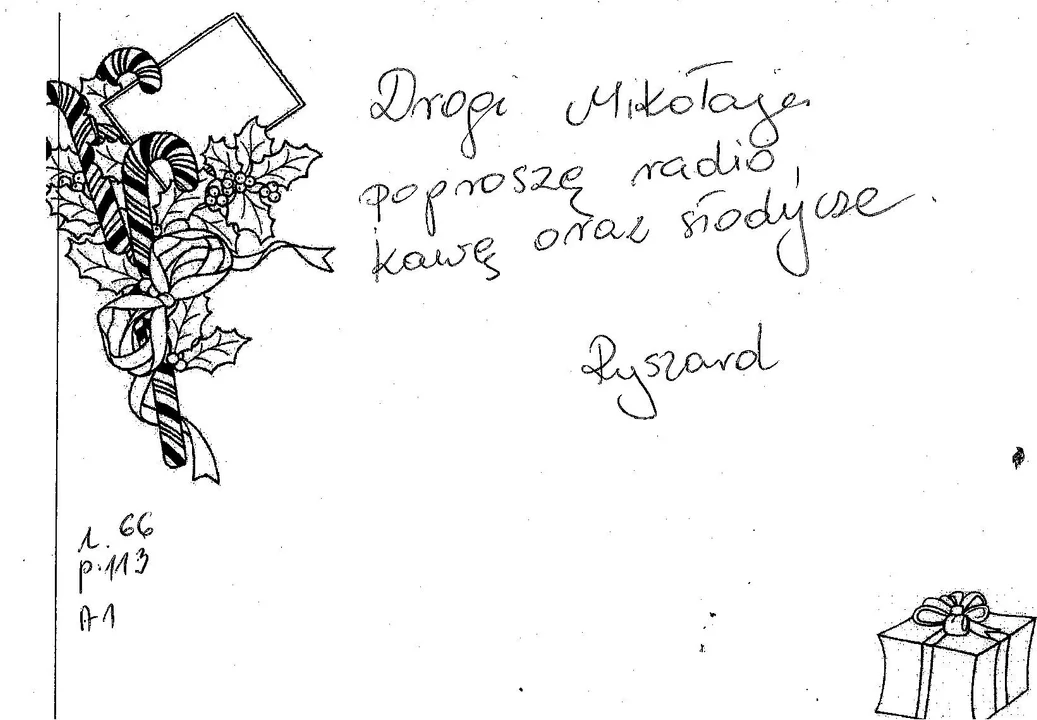 Drogi Mikołaju
poproszę radio,
kawę oraz słodycze.
Ryszard
l. 66
p. 113
A1